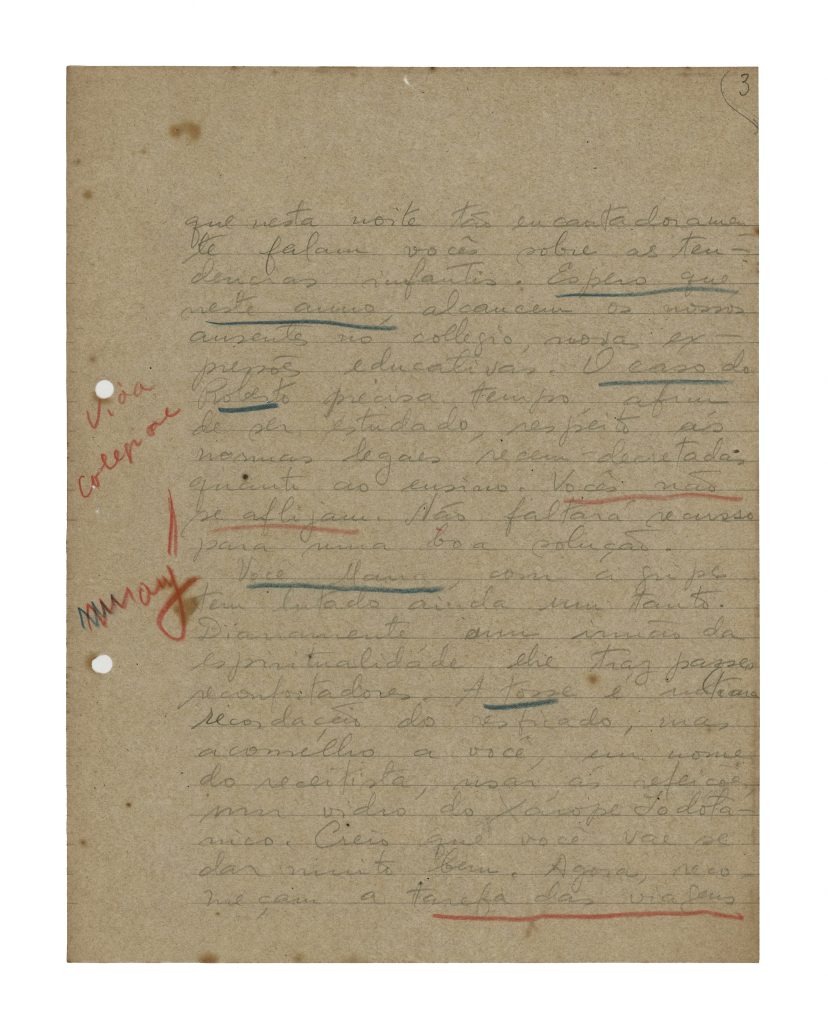 3
que nesta noite tão encantadoramen
te falam vocês sobre as ten-
dencias infantis. Espero que
neste anno, alcancem os nossos
ausentes no collegio, nova ex-
pressões educativas. O caso do
Roberto precisa tempo afim
de ser estudado, respeito ás
normas legaes recem-decretadas
quanto ao ensino. Vocês não
se aflijam. Não faltará recurso
para uma boa solução.
Você, Maria, com a gripe
tem lutado ainda um tanto.
Diariamente um irmão da
espiritualidade lhe traz passes
reconfortadores. A tosse é
recordação do resfriado, mas
aconselho a você, em nome
do receitista, usar, ás refeições,
um vidro do Xarope Iodota-
nico. Creio que você vae se
dar muito bem. Agora, reco-
meçam a tarefa das viagens
Vida